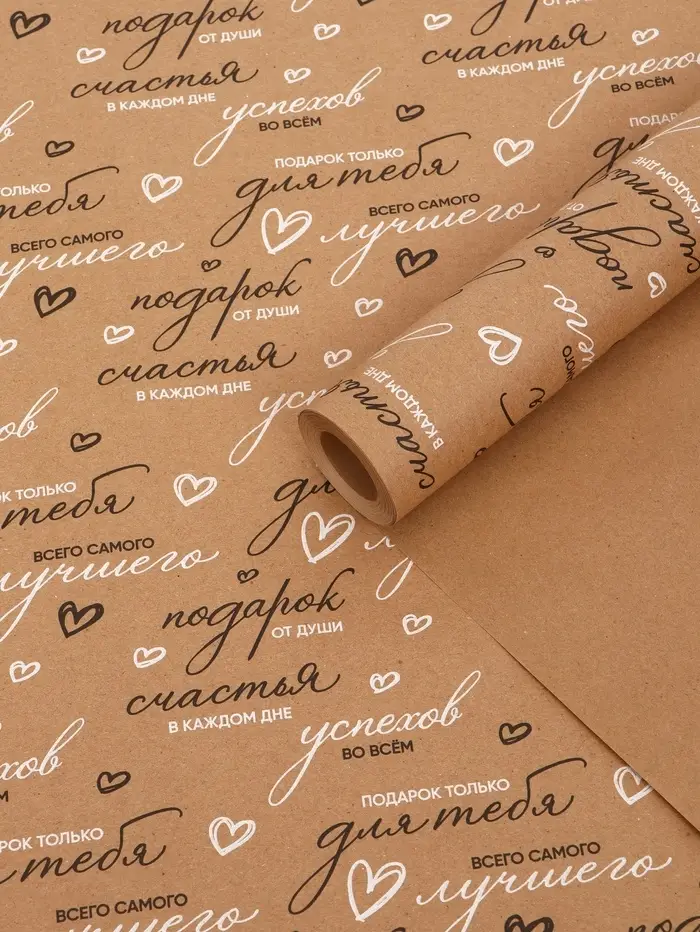 подарок
от души
счастья
в каждом дне
счастья
в каждом дне
успехов
во всём
успехов
во всём
ПОДАРОК ТОЛЬКО
для тебя
ТОЛЬКО
тебя
ВСЕГО САМОГО
лучшего
ВСЕГО САМОГО
лучшего
подарок
ОТ ДУШИ
счастья
В КАЖДОМ ДНЕ
В КАЖДОМ ДНЕ
ТОЛЬКО
тебя
ВСЕГО САМОГО
лучшего
подарок
ОТ ДУШИ
счастья
В КАЖДОМ ДНЕ
успехов
ВО ВСЁМ
ПОДАРОК ТОЛЬКО
для тебя
ТОЛЬКО
тебя
ВСЕГО САМОГО
лучшего
ВСЕГО САМОГО
лучшего